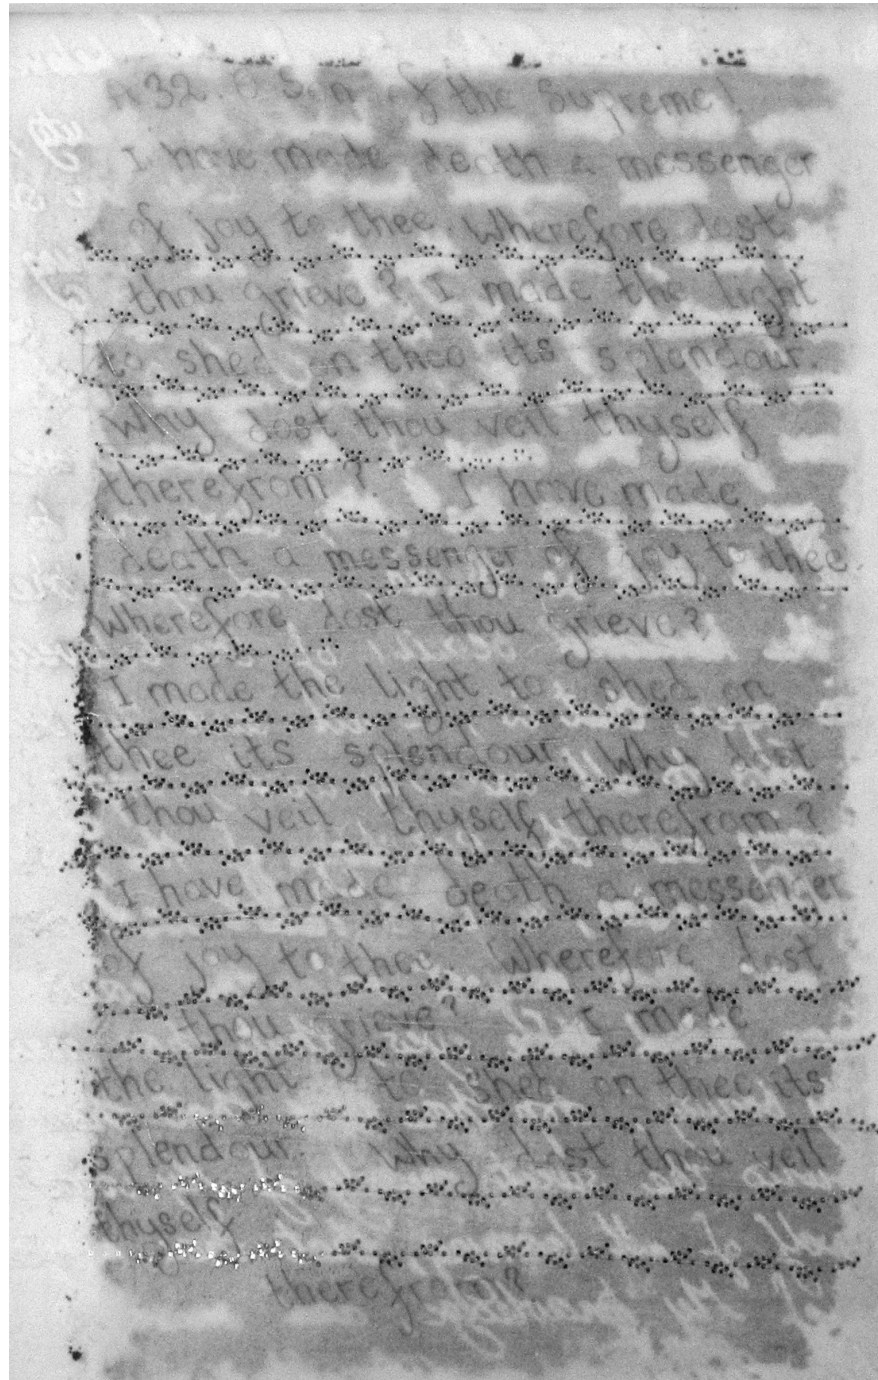 A32. O Son of the Supreme!
I have made death a messenger
of joy to thee. Wherefore dost
thou grieve? I made the light
to shed on thee its splendour.
Why dost thou veil thyself
therefrom? I have made
death a messenger of joy to thee
Wherefore dost thou grieve?
I made the light to shed on
thee its splendour. Why dost
thou veil thyself therefrom?
I have made death a messenger
of joy to thee. Wherefore dost
thou grieve? I made
the light to shed on thee its
splendour. Why dost thou veil
thyself
therefrom?